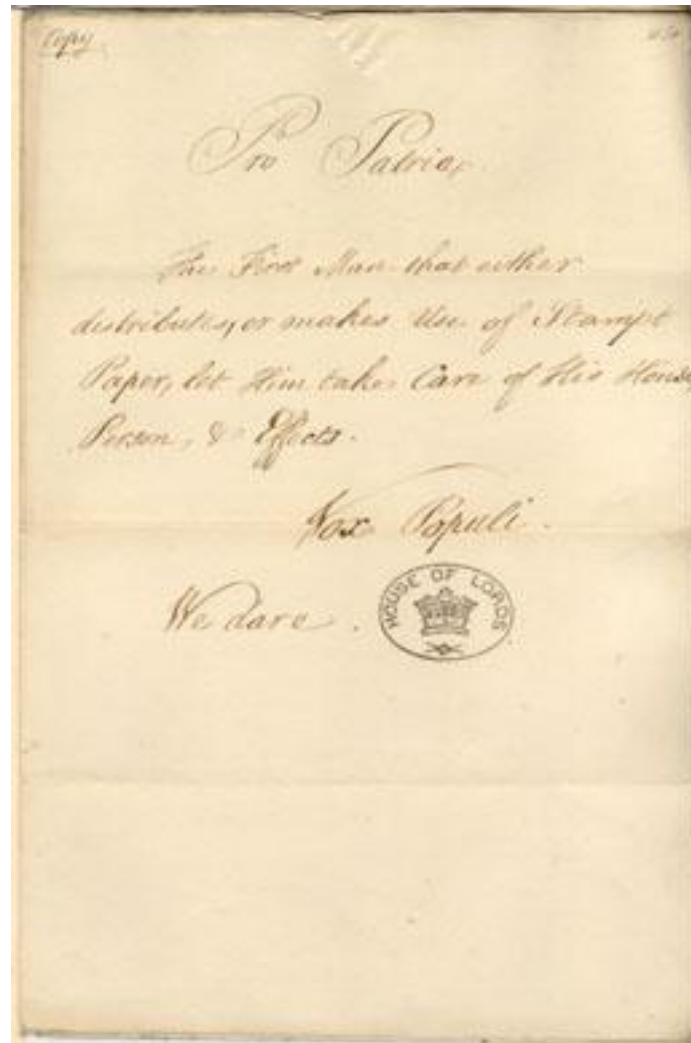 Copy
Pro Patria,
The First Man that either
distributes, or makes Use of Stampt
Paper, let Him take Care of His House
Person, & Effects.
Vox Populi.
We dare.
HOUSE OF LORDS